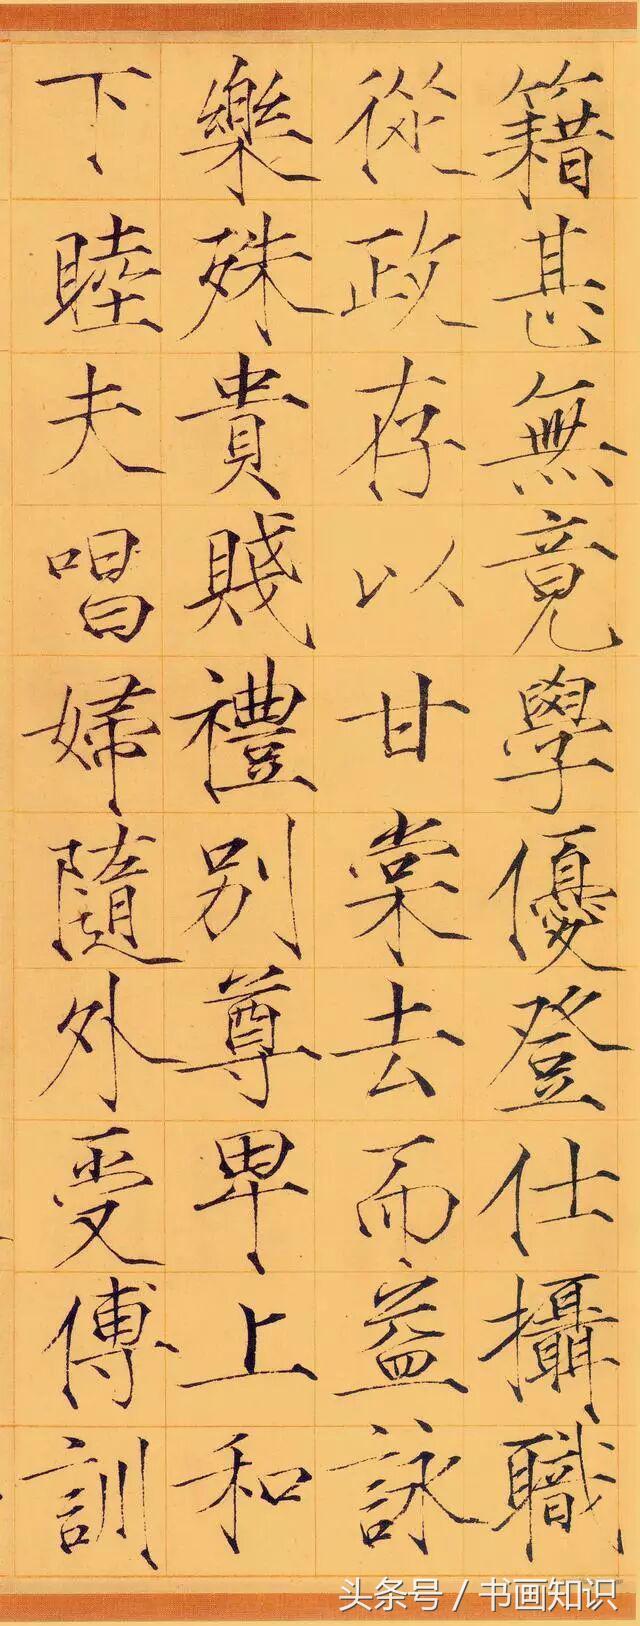 籍甚無竟學優登仕攝職
從政存以甘棠去而益詠
樂殊貴賤禮別尊卑上和
下睦夫唱婦隨外受傅訓
头条号 / 书画知识